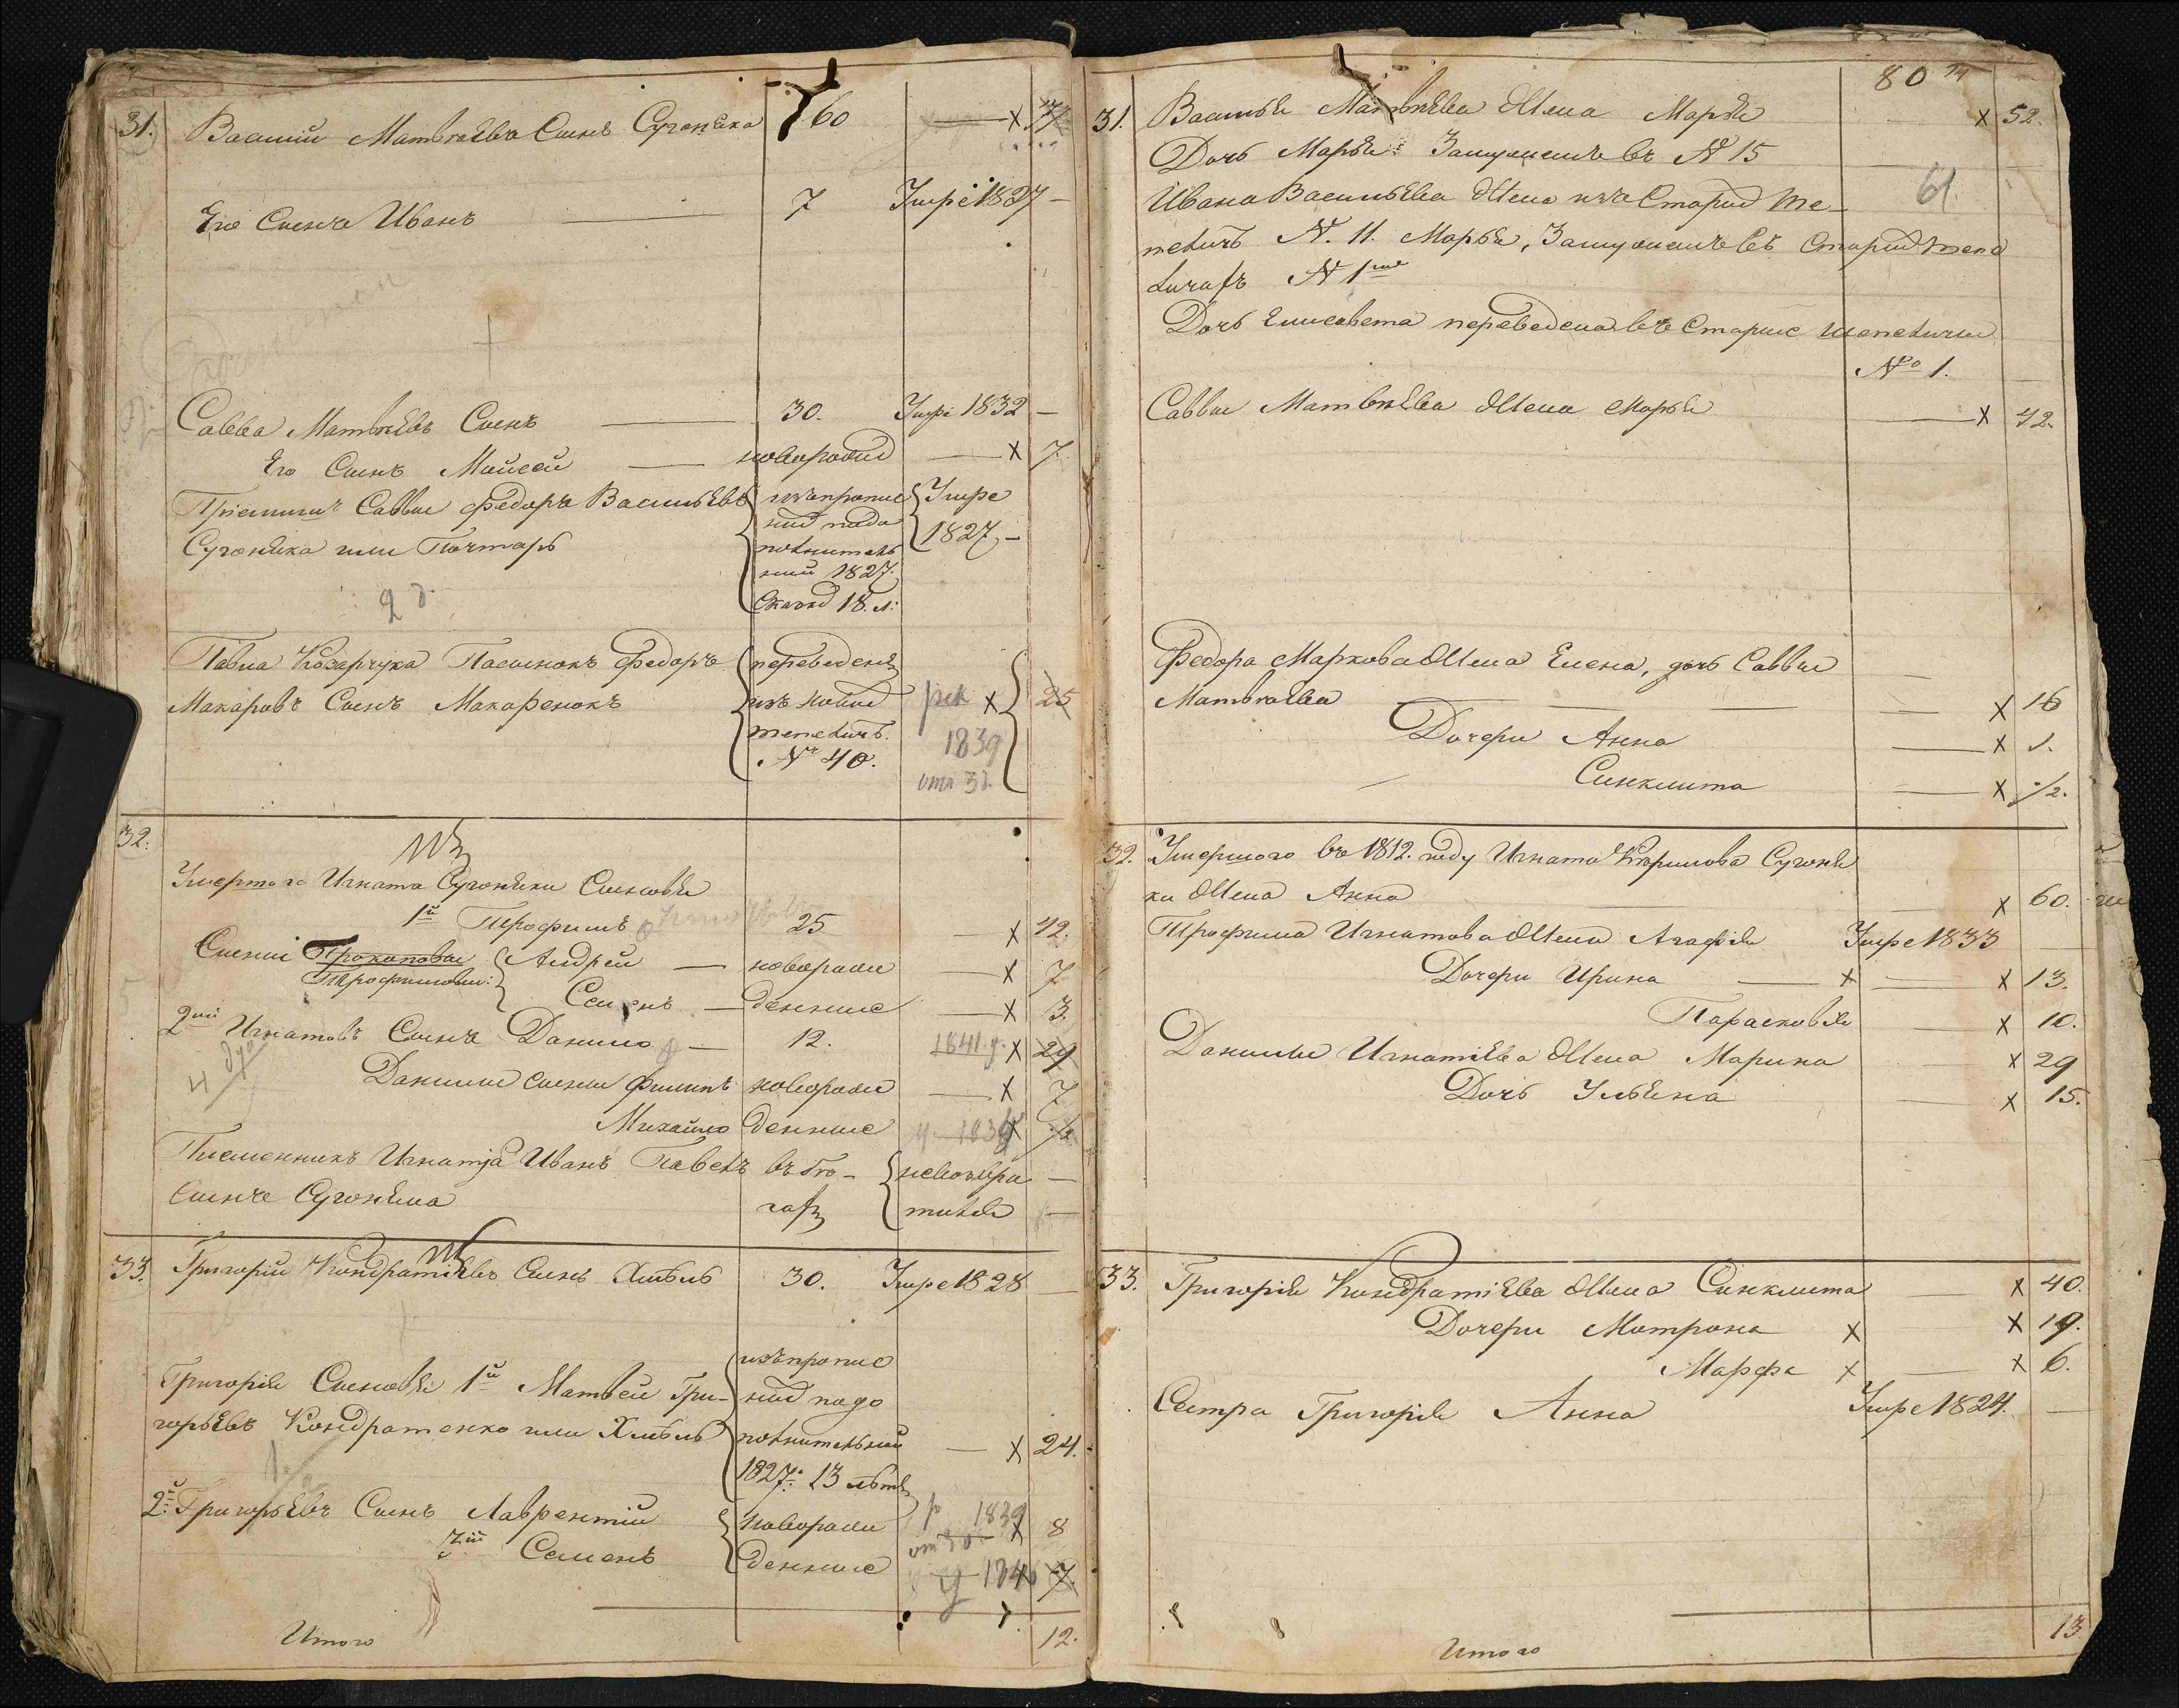 31. Василій Матвѣевъ Сынъ Сугоняка 60 — х
Его Сынъ Иванъ — 7 Умре 1827 —
Савва Матвѣевъ Сынъ — 30. Умре 1832 —
Его Сынъ Мойсей — новорожд — х 7.
Пріемышъ Саввы Федоръ Васильевъ
Сугоняка или Почтарь
изъ пропис
ной подо
полнитель
ной 1827.
Сказкѣ 18. л:
Умре
1827, —
2 д.
Павла Козарчука Пасынокъ Федоръ
Макаровъ Сынъ Макаренокъ
переведенъ
изъ новой
шепеличъ.
№ 40.
рек х 25
1839
32.
Умершаго Игната Сугоняки Сыновья
1й Трофимъ 25 — х 42.
Сыни Прокоповы Андрей — новорож — х 7
Трофимовы: Семенъ — денные — х 3.
2ий Игнатовъ Сынъ Данило — 12. 1841 г. х 29
4 душ
Данилы сыны Филипъ новорож — х 7
Михайло денные 1839 х 1/2
Племенникъ Игнатја Иванъ Павелъ въ бѣ-
Сынъ Сугоняка
гахъ
невозвра
тился —
33. Григорій Кондратіевъ Сынъ Хмѣль 30. Умре 1828 —
Григорія Сыновья 1й Матвей Гри-
горьевъ Кондратенко или Хмѣль
изъ пропис
ной подо
полнительной
1827: 13 лѣтъ
— х 24.
2й Григорьевъ Сынъ Лаврентій новорож 1839 х 8
3ій Семенъ денные 1840 7.
Итого 12.
80
31. Василья Матвѣева Жена Марья х 52.
Дочь Марья: Замужемъ въ № 15
61
Ивана Васильева Жена изъ Старой Ше-
пеличъ №. 11. Марья, Замужемъ въ Старой шепе
личахъ № 1ый
Дочь Елисавета переведена въ Старые шепеличи
№ 1. —
Саввы Матвѣева Жена Марья — х 42.
Федора Маркова Жена Елена, дочь Саввы
Матвѣева — х 16
Дочери Анна — х 1.
Синклита — х 1/2.
32. Умершого въ 1812. году Игната Кирилова Сугоня
ки Жена Анна — х 60.
Трофима Игнатова Жена Агафія Умре 1833
Дочери Ирина — х — х 13.
Парасковія — х 10.
Данилы Игнатіева Жена Марина х 29
Дочь Ульяна — х 15.
33. Григорія Кондратіева Жена Синклита — х 40.
Дочери Матрона х х 19.
Марфа х — х 6.
Сестра Григорія Анна Умре 1824. —
Итого 13